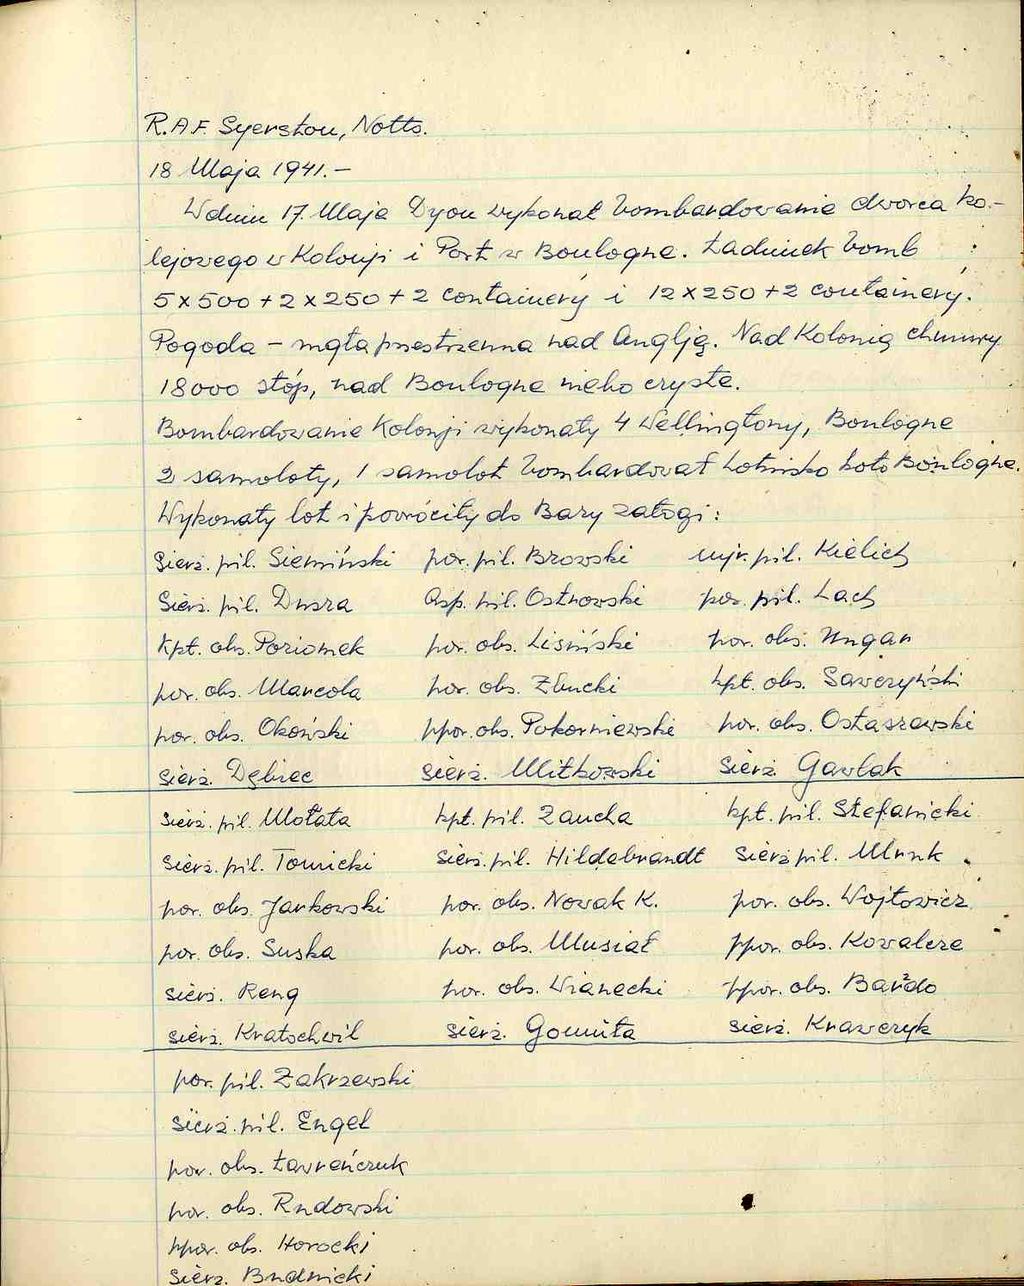 R.A.F. Syerston, Notts.
18 Maja 1941.–
W dniu 17. Maja Dyon wykonał bombardowanie dworca ko.-
lejowego w Kolonji i Port w Boulogne. Ładunek bomb :
5x500 + 2x250 + 2 containery i 12x250 + 2 containery.
Pogoda – mgła przestrzenna nad Anglją. Nad Kolonią chmury
18000 stóp, nad Boulogne niebo czyste.
Bombardowanie Kolonji wykonały 4 Wellingtony, Boulogne
2 samoloty, 1 samolot bombardował lotnisko koło Boulogne.
Wykonały lot i powróciły do Bazy załogi:
Sierż. pil. Siemiński por. pil. Brzowski mjr. pil. Kielich
Sierż. pil. Dusza Asp. pil. Ostrowski por. pil. Lach
Kpt. obs. Poziomek por. obs. Lisiński por. obs. Ungar
por. obs. Marcola por. obs. Zbucki kpt. obs. Sawczyński
por. obs. Okoński ppor. obs. Pokorniewski por. obs. Ostaszewski
Sierż. Dębiec Sierż. Mitkowski Sierż. Gawlak
Sierż. pil. Mołata kpt. pil. Zaucha kpt. pil. Stefanicki
Sierż. pil. Tomicki Sierż. pil. Hildebrandt Sierż pil. Mruk
por. obs. Jarkowski por. obs. Nowak K. por. obs. Wojtowicz
por. obs. Suska por. obs. Musiał ppor. obs. Kowalcze
Sierż. Reng por. obs. Wianecki ppor. obs. Barzdo
Sierż. Kratochwil Sierż. Gomuła Sierż. Krawczyk
por. pil. Zakrzewski
Sierż. pil. Engel
por. obs. Ławreńczuk
por. obs. Rudowski
ppor. obs. Horocki
Sierż. Budnicki